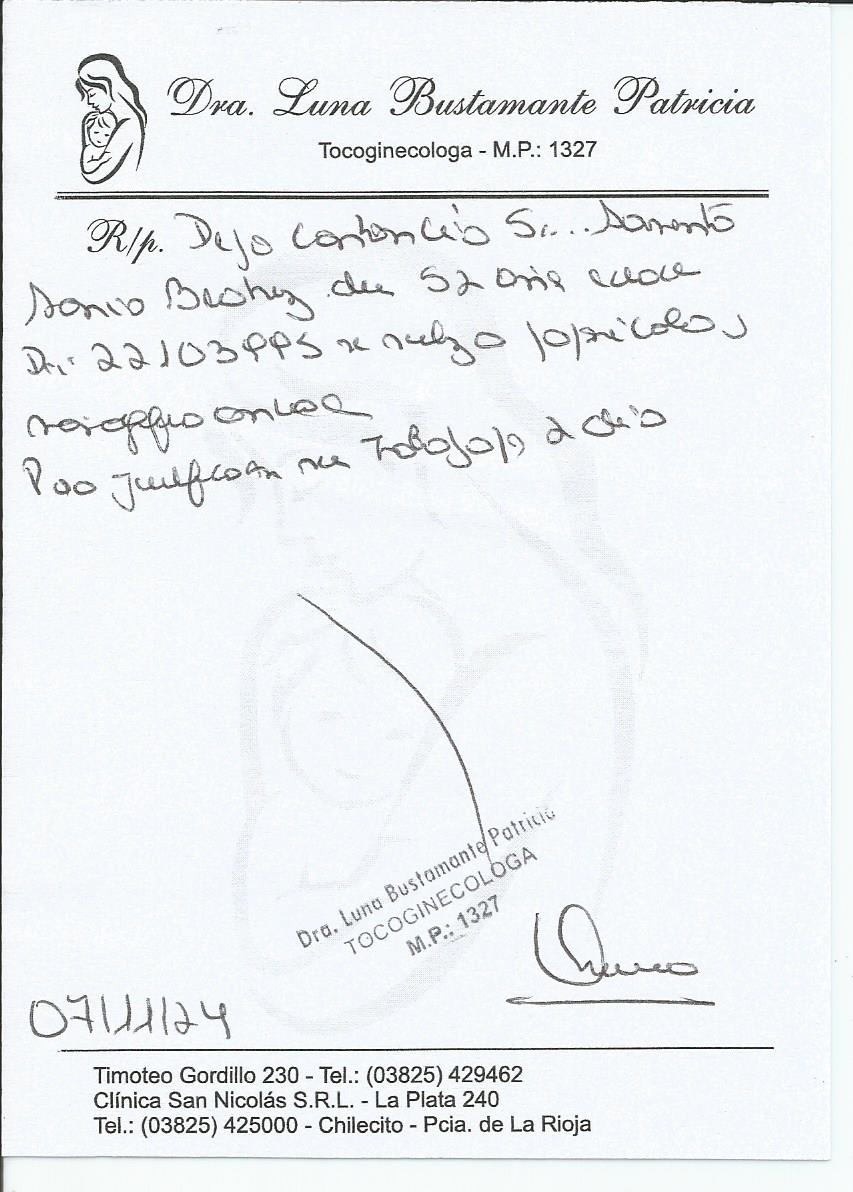 Dra. Luna Bustamante Patricia
Tocoginecologa - M.P.: 1327
R/p. Dejo constancia Sr... Sarmento
Sonia Beatriz de 52 años
D.i: 22103995 se realizo
mamografia
Para justificar Trabajo 2 dia
Dra. Luna Bustamante Patricia
TOCOGINECOLOGA
M.P.: 1327
07/11/24
Timoteo Gordillo 230 - Tel.: (03825) 429462
Clínica San Nicolás S.R.L. - La Plata 240
Tel.: (03825) 425000 - Chilecito - Pcia. de La Rioja